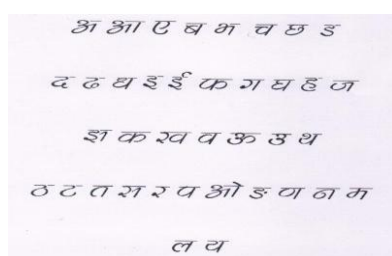 अ आ ए ब भ च छ ड
द ढ ध इ ई फ ग घ ह ज
झ क ख व ऊ उ थ
ठ ट त स र प ओ ङ ण न म
ल य